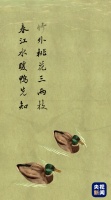 竹外桃花三两枝
春江水暖鸭先知
央视新闻